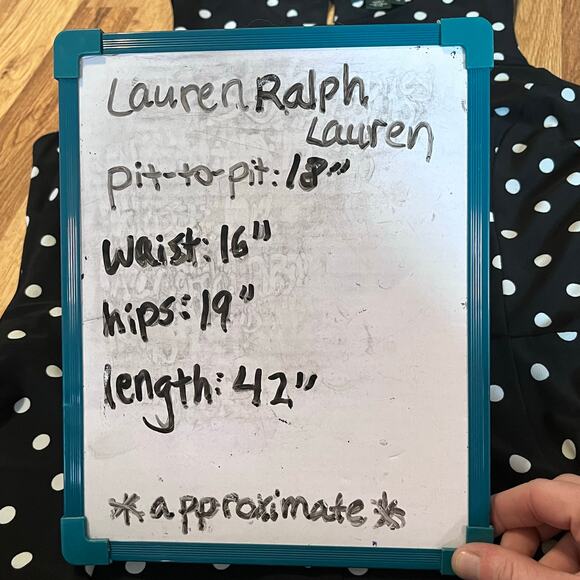 Lauren Ralph
Lauren
pit-to-pit: 18"
waist: 16"
hips: 19"
length: 42"
*approximate*